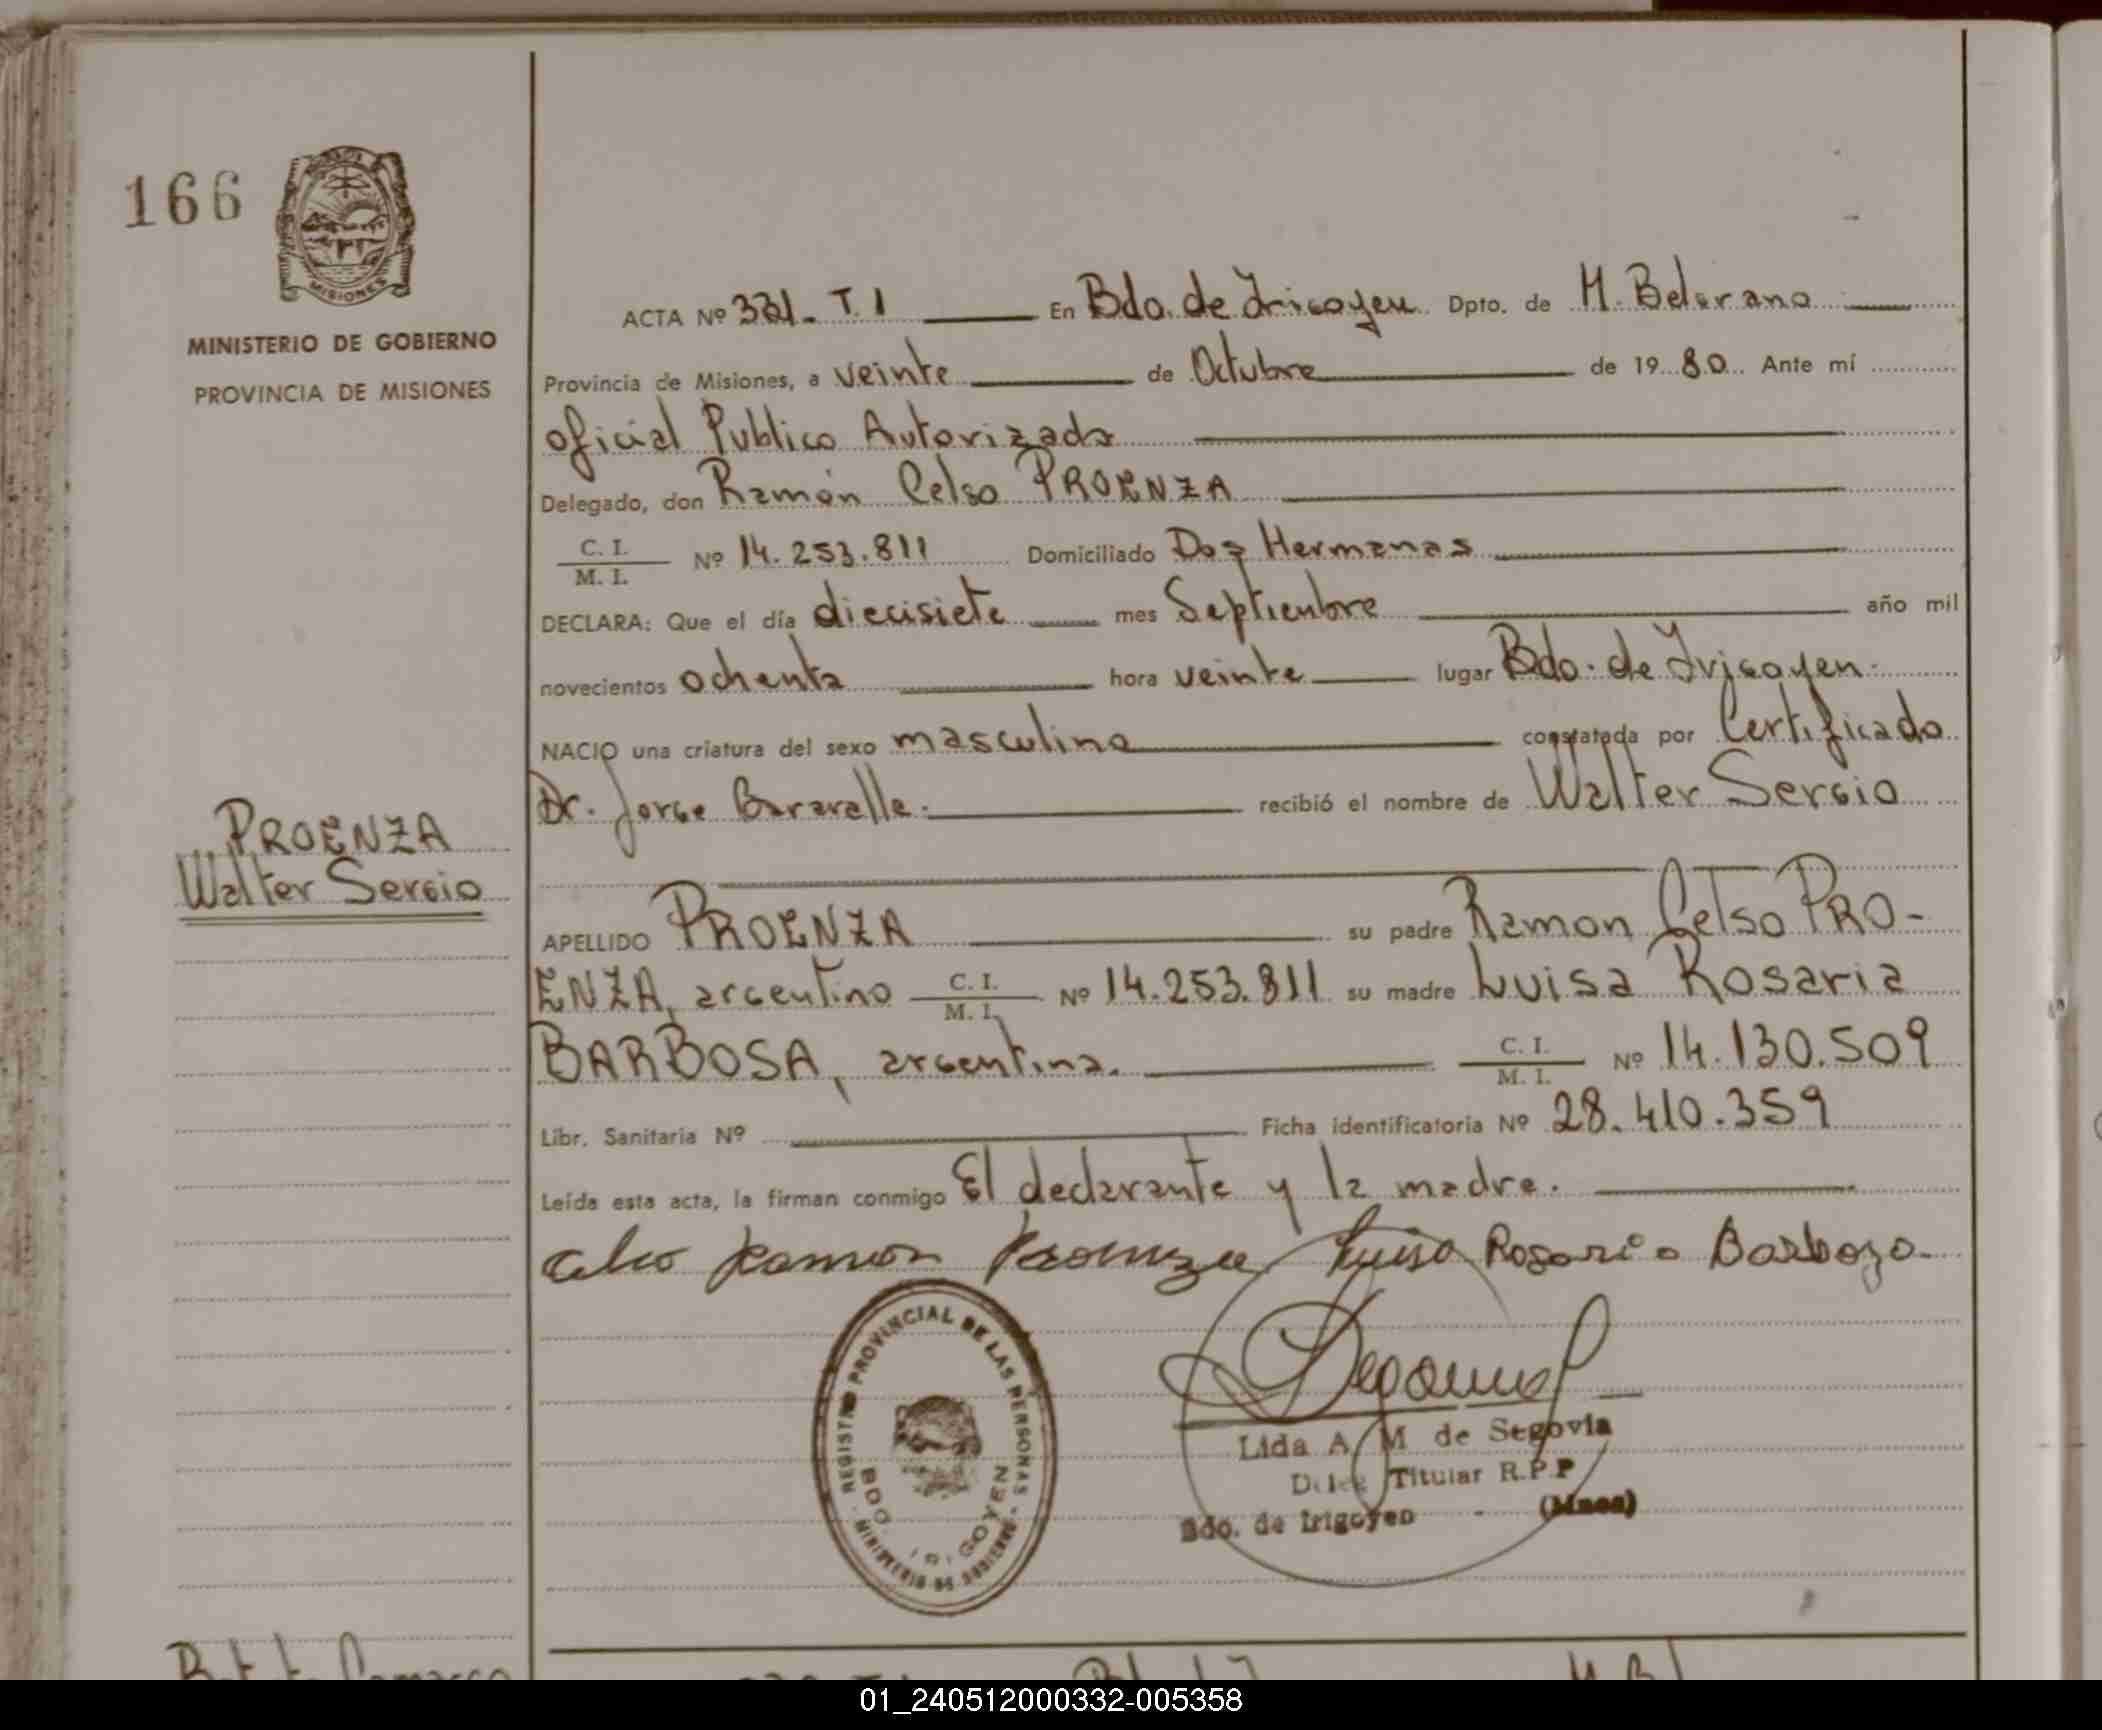 166
MISIONES
MINISTERIO DE GOBIERNO
PROVINCIA DE MISIONES
ACTA Nº 331. T. 1 En Bdo. de Irigoyen Dpto. de M. Belgrano
Provincia de Misiones, a veinte de Octubre de 1980 Ante mí
oficial Publico Autorizado
Delegado, don Ramón Celso PROENZA
C. I. / M. I. Nº 14.253.811 Domiciliado Dos Hermanas
DECLARA: Que el día diecisiete mes Septiembre año mil
novecientos ochenta hora veinte lugar Bdo. de Irigoyen.
NACIO una criatura del sexo masculino constatada por Certificado
Dr. Jorge Bararalle. recibió el nombre de Walter Sergio
PROENZA
Walter Sergio
APELLIDO PROENZA su padre Ramon Celso PRO-
ENZA, argentino C. I. / M. I. Nº 14.253.811 su madre Luisa Rosaria
BARBOSA, argentina. C. I. / M. I. Nº 14.130.509
Libr. Sanitaria Nº Ficha identificatoria Nº 28.410.359
Leída esta acta, la firman conmigo El declarante y la madre.
Celso Ramon Proenza Luisa Rosaria Barbozo
REGISTRO PROVINCIAL DE LAS PERSONAS
BDO. IRIGOYEN
MINISTERIO DE GOBIERNO
Lida A. M de Segovia
Deleg Titular R.P.P
Bdo. de Irigoyen - (Mnes)
01_240512000332-005358